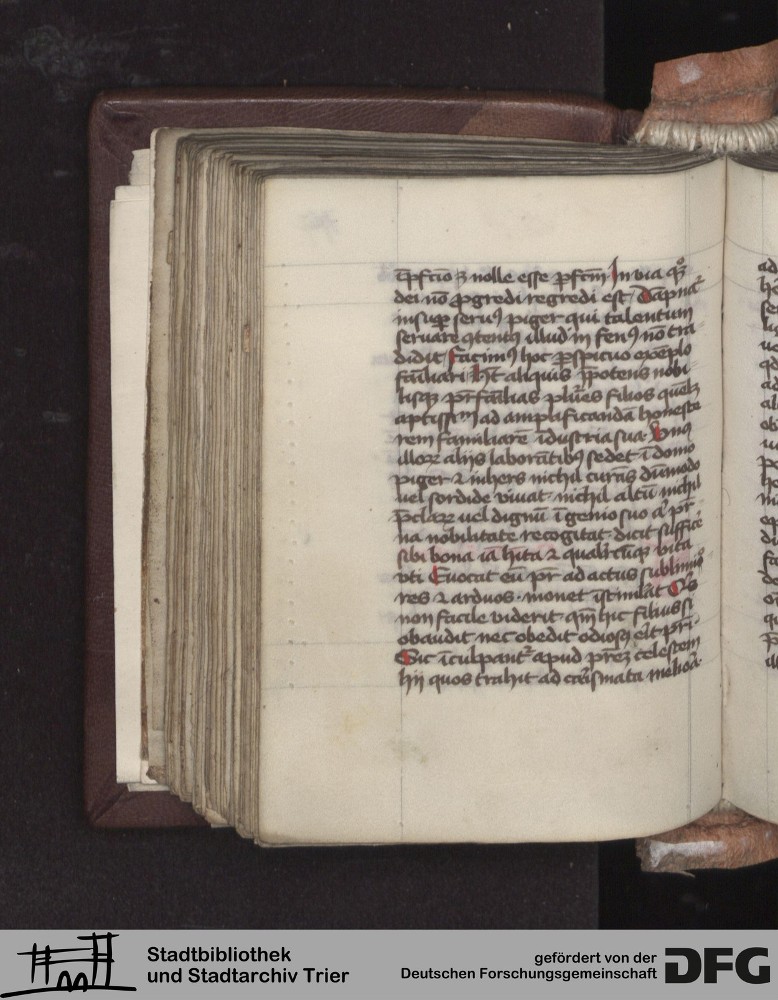 īpfctio ꝫ nolle esse pfctm̄ In via qͦꝫ
dei nō ꝓgredi regredi est Dāpnatᷣ
insuꝑ seruꝰ piger qui talentum
seruare ꝯtentꝰ illud in fenꝰ nō tra-
didit facimꝰ hoc ꝑspicuo exēplo
fāiliari Hꝫt aliquis p̄potens nobi
lisqꝫ pr̄fāilias plures filios quēlꝫ
aptissimū ad amplificandā honeste
rem familiarē īdustria sua Vnꝰ
illoꝝ alijs laborātibꝰ sedet ī domo
piger ⁊ inhers nichil curās dūmodo
uel sordide viuat nichil altū nichil
p̄claꝝ uel dignū īgenio suo aͭ pr̄
na nobilitate recogitat dicit suffice
sibi bona iā hita ⁊ qualitercūqꝫ vita
vti Euocat eū pr̄ ad actus sublimio
res ⁊ arduos monet ⁊ stimulat Qͥs
non facile viderit qm̄ hic filius si
obaudit nec obedit odiosꝰ est pr̄i
Sic īculpantᷣ apud pr̄eꝫ celestem
hij quos trahit ad carismata meliora
Stadtbibliothek
und Stadtarchiv Trier
gefördert von der
Deutschen Forschungsgemeinschaft
DFG